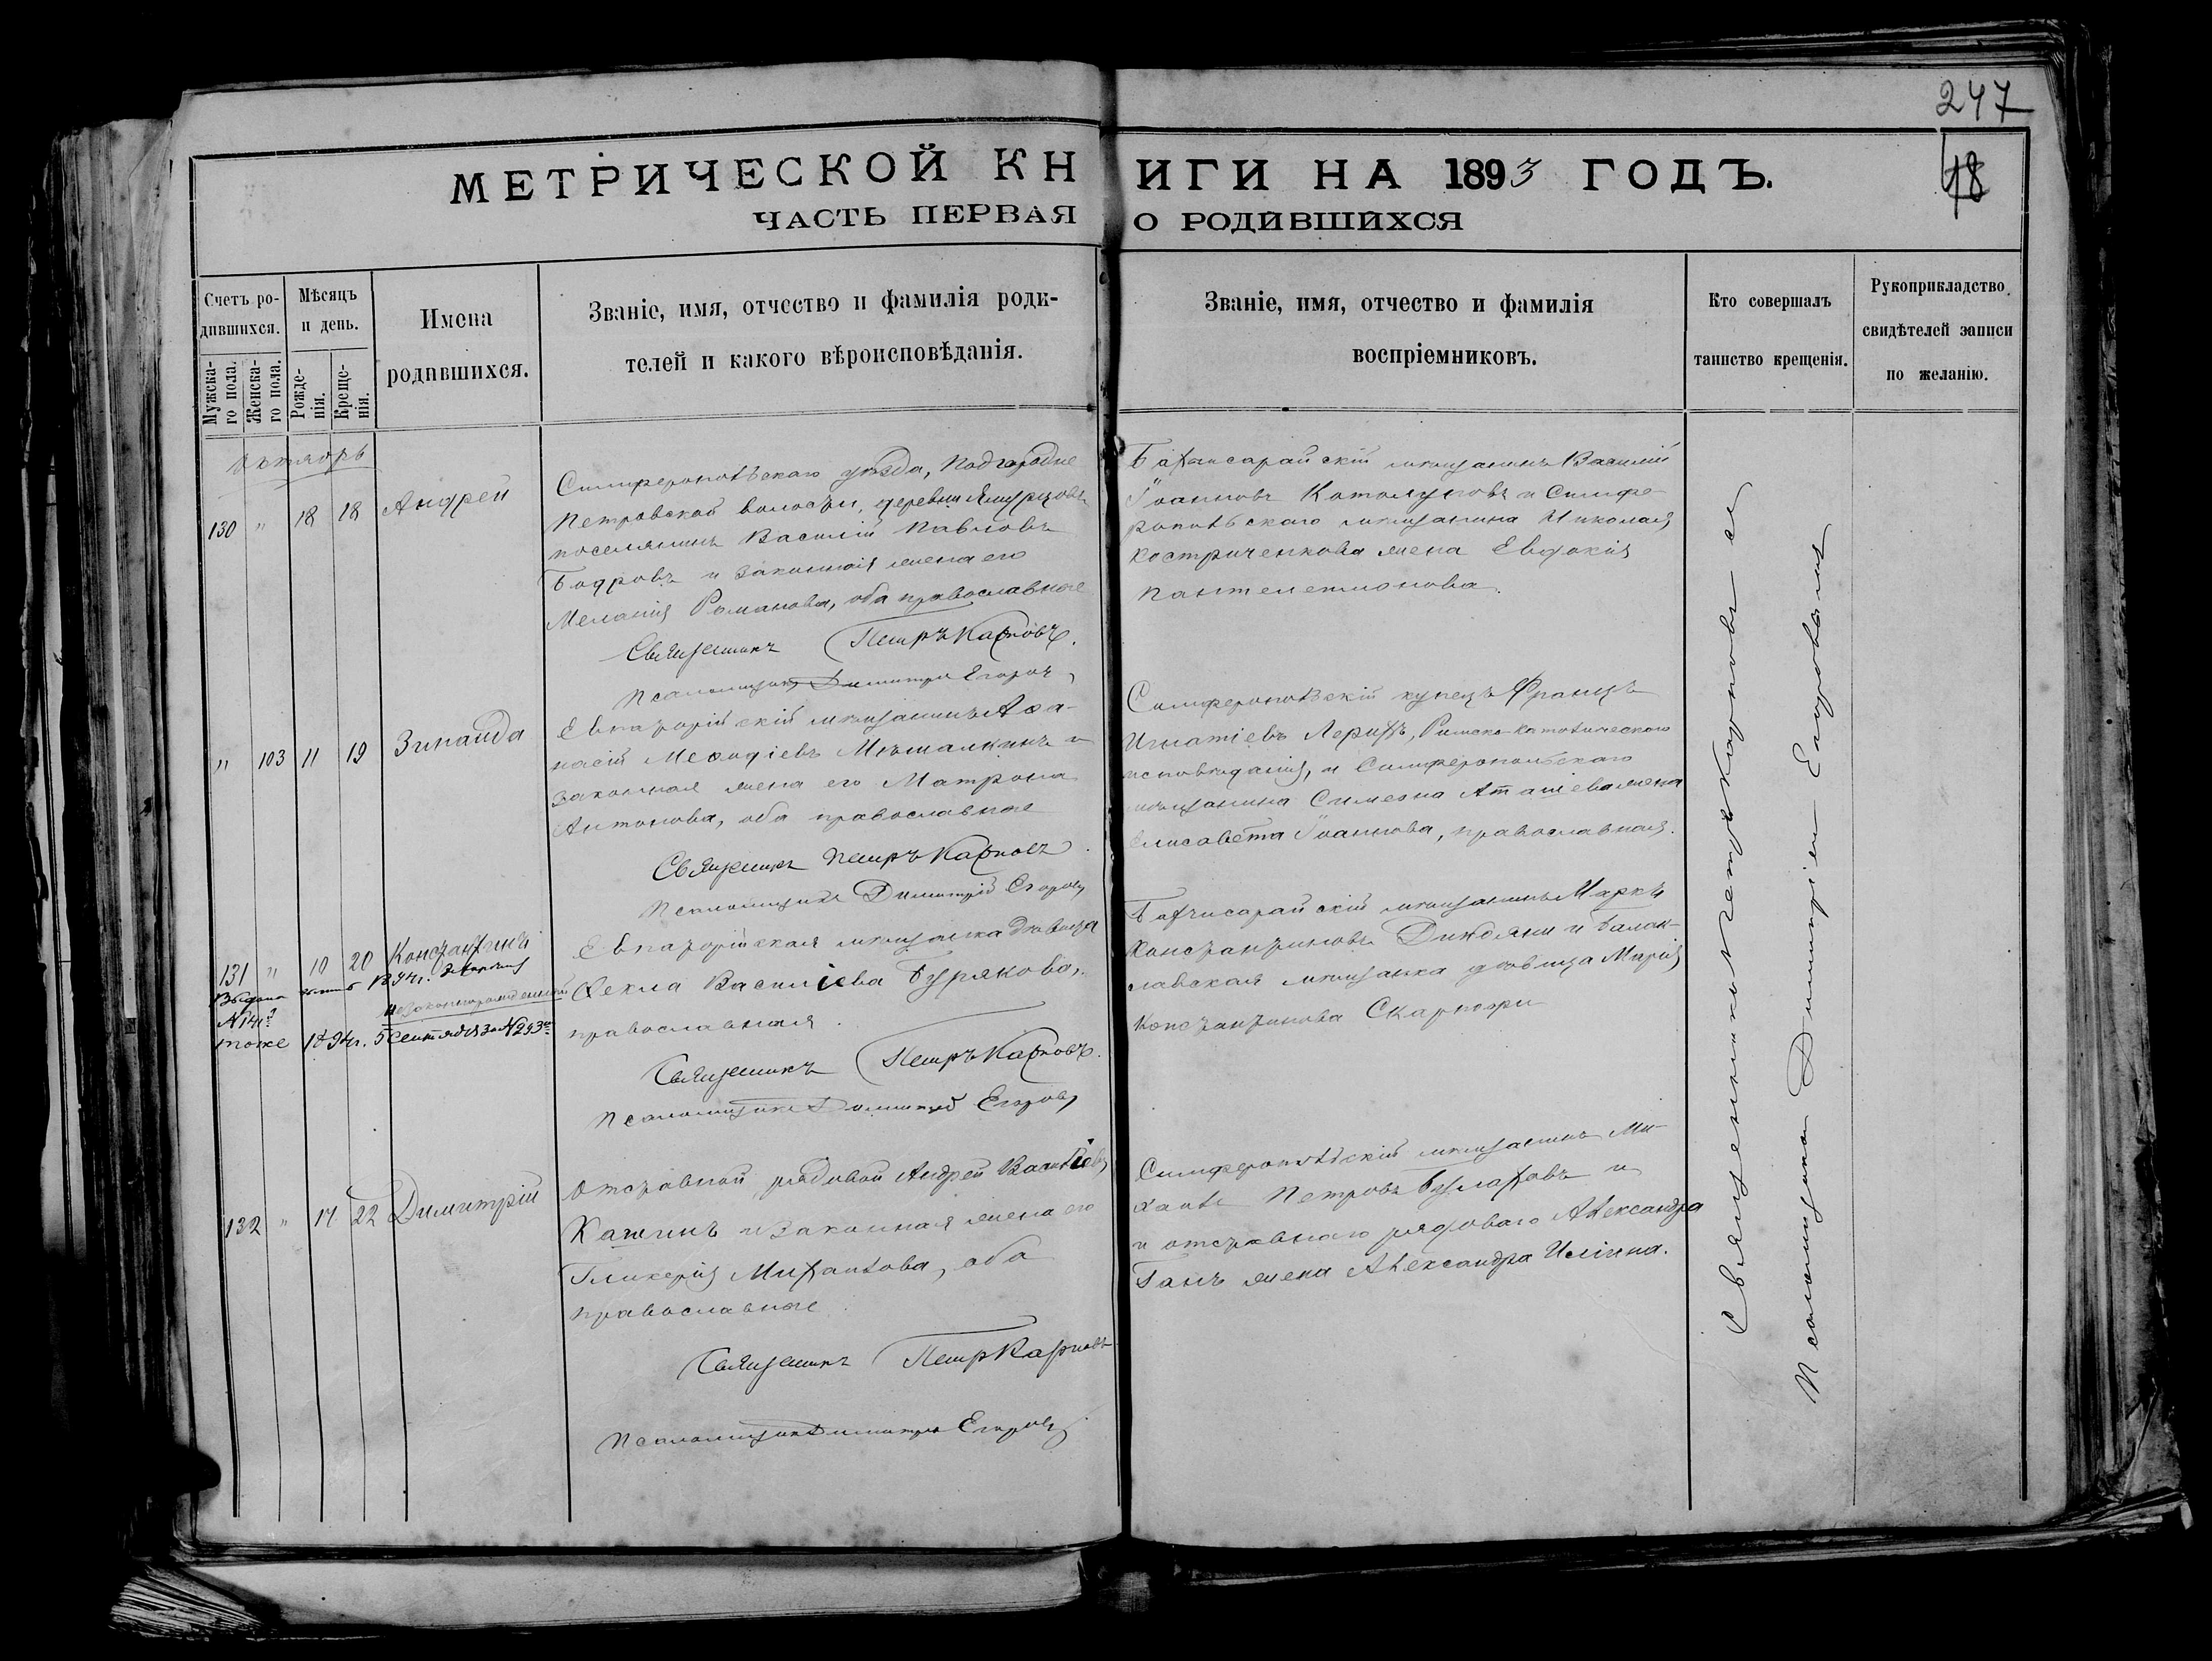 247
18
МЕТРИЧЕСКОЙ КНИГИ НА 1893 ГОДЪ.
ЧАСТЬ ПЕРВАЯ О РОДИВШИХСЯ
Счетъ ро-
дившихся.
Мужска-
го пола.
Женска-
го пола.
Мѣсяцъ
и день.
Рожде-
нія.
Креще-
нія.
Имена
родившихся.
Званіе, имя, отчество и фамилія роди-
телей и какого вѣроисповѣданія.
Званіе, имя, отчество и фамилія
воспріемниковъ.
Кто совершалъ
таинство крещенія.
Рукоприкладство
свидѣтелей записи
по желанію.
Октябрь
130 " 18 18 Андрей
Симферопольскаго уѣзда, Подгородне
Петровской волости, деревни
поселянинъ Василій Павловъ
Бодровъ и законная жена его
Меланія Романова, оба православные
Священникъ Петръ Карповъ.
Псаломщикъ Димитрій Егоровъ
Бахчисарайскій мѣщанинъ Василій
Іоанновъ и Симфе-
ропольскаго мѣщанина Николая
Костриченкова жена Евдокія
Пантелеимонова.
" 103 11 19 Зинаида
Евпаторійскій мѣщанинъ Аѳа-
насій Меѳодіевъ Мѣшалкинъ и
законная жена его Матрона
Антонова, оба православные
Священникъ Петръ Карповъ
Псаломщикъ Димитрій Егоровъ
Симферопольскій купецъ Францъ
Игнатіевъ Римско-католическаго
исповѣданія, и Симферопольскаго
мѣщанина Симеона жена
Елисавета Іоаннова, православная.
131 " 10 20 Константинъ
незаконнорожденный
тоже 1894г. 5 Сентября за №293
Евпаторійская мѣщанка дѣвица
Ѳекла Василіева Бурякова,
православная
Священникъ Петръ Карповъ.
Псаломщикъ Димитрій Егоровъ
Бахчисарайскій мѣщанинъ Маркъ
Константиновъ и Балак-
лавская мѣщанка дѣвица Марія
Константинова
132 " 17 22 Димитрій
Отставной рядовой Андрей Василіевъ
Кажинъ и законная жена его
Гликерія Михаилова, оба
православные
Священникъ Петръ Карповъ
Псаломщикъ Димитрій Егоровъ
Симферопольскій мѣщанинъ Ми-
хаилъ Петровъ Булаховъ и
и отставнаго рядоваго Александра
Ганъ жена Александра Иліина.
Священникъ Петръ Карповъ съ
Псаломщикомъ Димитріемъ Егоровымъ